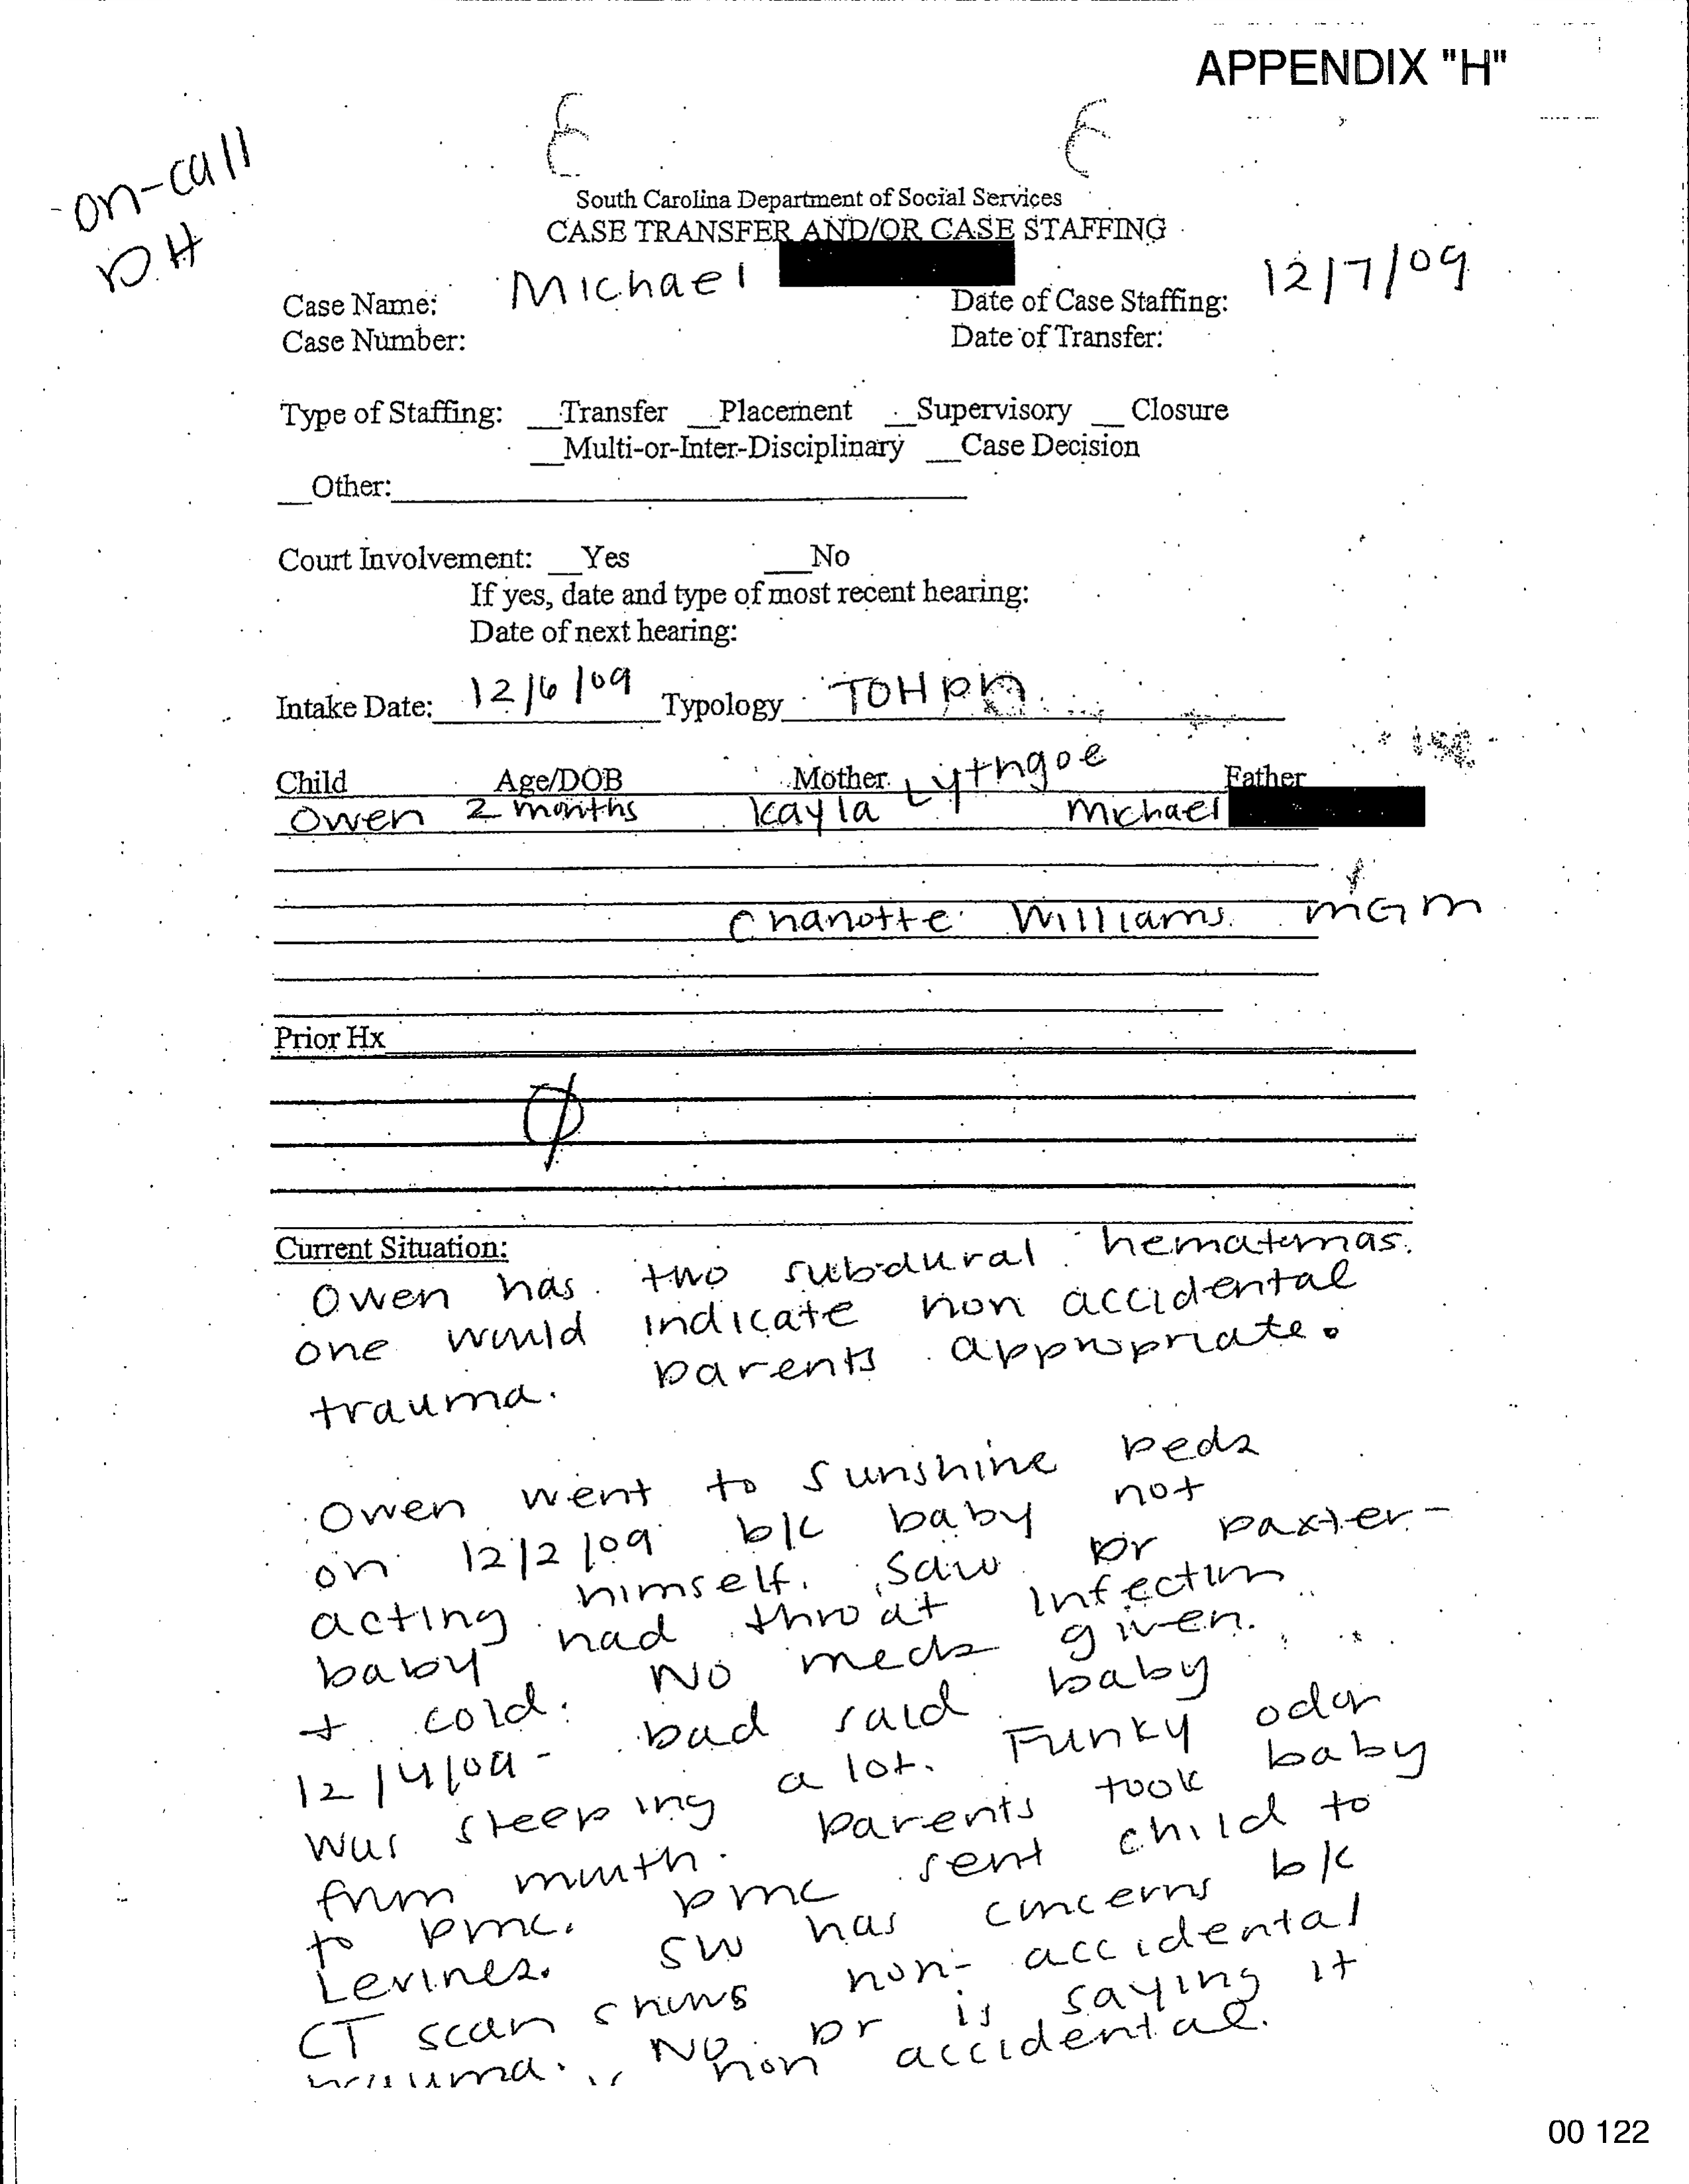 APPENDIX "H"
on-call
DH
South Carolina Department of Social Services
CASE TRANSFER AND/OR CASE STAFFING
Case Name: Michael
Date of Case Staffing: 12/7/09
Case Number:
Date of Transfer:
Type of Staffing: __Transfer __Placement __Supervisory __Closure
__Multi-or-Inter-Disciplinary __Case Decision
__Other:
Court Involvement: __Yes __No
If yes, date and type of most recent hearing:
Date of next hearing:
Intake Date: 12/6/09 Typology TOHPN
Child Age/DOB Mother Lythgoe Father
Owen 2 months Kayla Michael
Charlotte Williams MGM
Prior Hx
Ø
Current Situation:
Owen has two subdural hematomas.
one would indicate non accidental
trauma. Parents appropriate.
Owen went to Sunshine Peds
on 12/2/09 b/c baby not
acting himself. Saw Dr Baxter-
baby had throat infection
+ cold. No meds given.
12/4/09- Dad said baby
was sleeping a lot. Funky odor
from mouth. Parents took baby
to PMC. PMC sent child to
Levines. SW has concerns b/c
CT scan shows non-accidental
trauma. No Dr is saying it
non accidental.
00 122